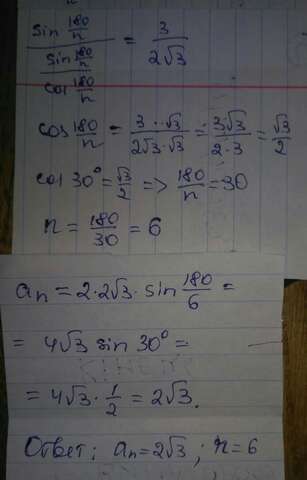 sin 180/n / (sin 180/n / cos 180/n) = 3 / 2√3
cos 180/n = 3·√3 / 2√3·√3 = 3√3 / 2·3 = √3 / 2
cos 30° = √3/2 => 180/n = 30
n = 180/30 = 6
aₙ = 2·2√3 · sin 180/6 =
= 4√3 sin 30° =
= 4√3 · 1/2 = 2√3.
Ответ: aₙ = 2√3 ; n = 6